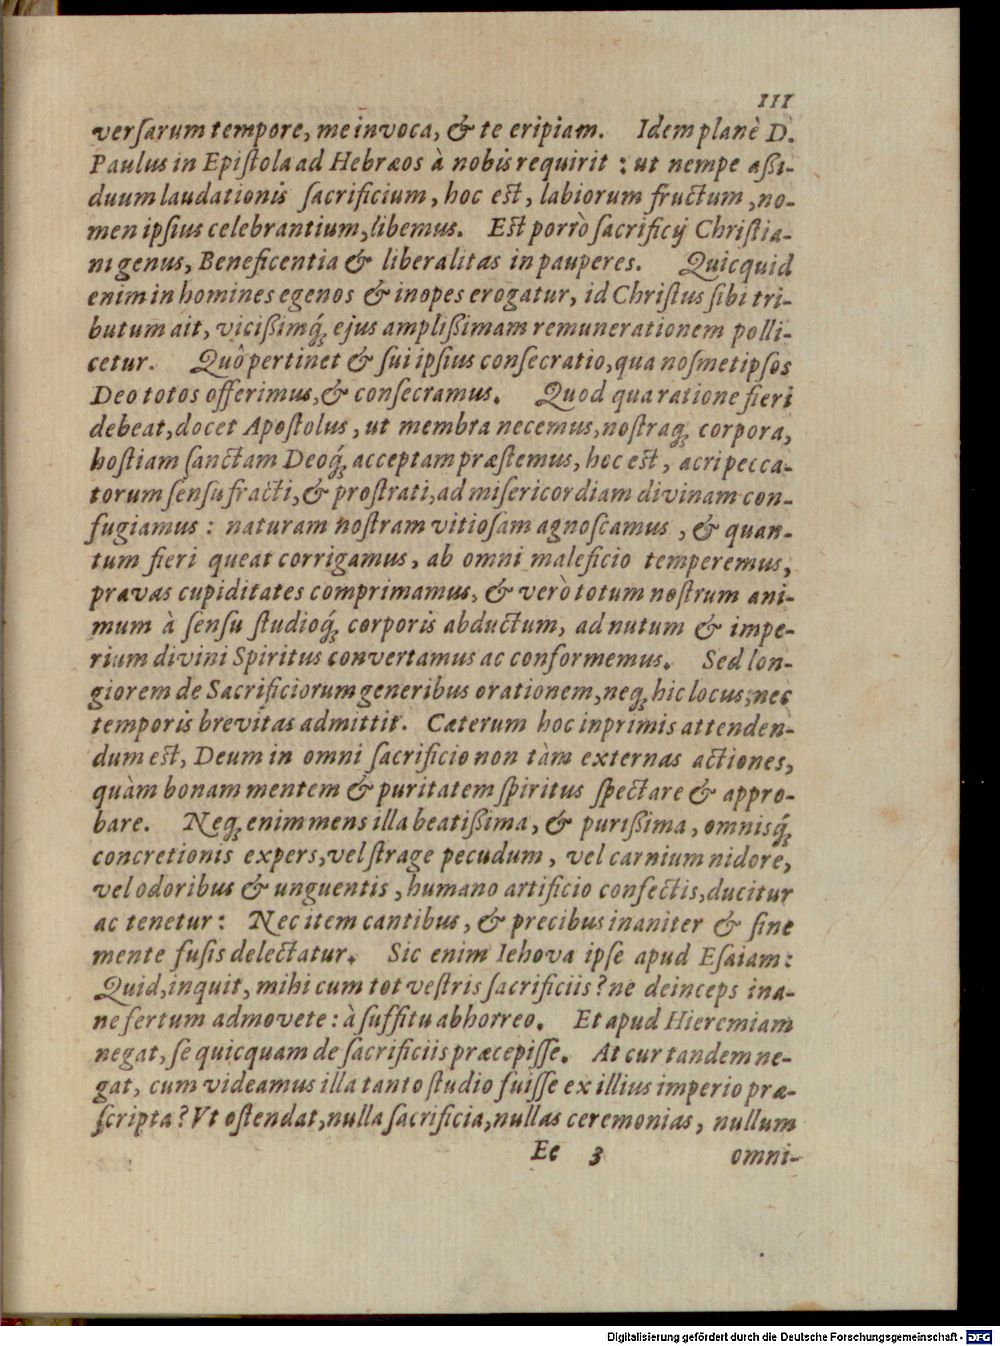 111
verſarum tempore, me invoca, & te eripiam. Idem planè D.
Paulus in Epiſtola ad Hebræos à nobis requirit : ut nempe aßi-
duum laudationis ſacrificium, hoc eſt, labiorum fructum, no-
men ipſius celebrantium, libemus. Eſt porrò ſacrificij Chriſtia-
ni genus, Beneficentia & liberalitas in pauperes. Quicquid
enim in homines egenos & inopes erogatur, id Chriſtus ſibi tri-
butum ait, vicißimq́; ejus amplißimam remunerationem polli-
cetur. Quô pertinet & ſui ipſius conſecratio, qua noſmetipſos
Deo totos offerimus, & conſecramus. Quod qua ratione fieri
debeat, docet Apoſtolus, ut membra necemus, noſtraq; corpora,
hoſtiam ſanctam Deoq́; acceptam præſtemus, hoc eſt, acri pecca-
torum ſenſu fracti, & proſtrati, ad miſericordiam divinam con-
fugiamus : naturam noſtram vitioſam agnoſcamus, & quan-
tum fieri queat corrigamus, ab omni maleficio temperemus,
pravas cupiditates comprimamus, & verò totum noſtrum ani-
mum à ſenſu ſtudioq́; corporis abductum, ad nutum & impe-
rium divini Spiritus convertamus ac conformemus. Sed lon-
giorem de Sacrificiorum generibus orationem, neq; hic locus, nec
temporis brevitas admittit. Cæterum hoc inprimis attenden-
dum eſt, Deum in omni ſacrificio non tàm externas actiones,
quàm bonam mentem & puritatem ſpiritus ſpectare & appro-
bare. Neq; enim mens illa beatißima, & purißima, omnisq́;
concretionis expers, vel ſtrage pecudum, vel carnium nidore,
vel odoribus & unguentis, humano artificio confectis, ducitur
ac tenetur : Nec item cantibus, & precibus inaniter & ſine
mente fuſis delectatur. Sic enim Iehova ipſe apud Eſaiam :
Quid, inquit, mihi cum tot veſtris ſacrificiis? ne deinceps ina-
ne fertum admovete : à ſuffitu abhorreo. Et apud Hieremiam
negat, ſe quicquam de ſacrificiis præcepiſſe. At cur tandem ne-
gat, cum videamus illa tanto ſtudio fuiſſe ex illius imperio præ-
ſcripta? Vt oſtendat, nulla ſacrificia, nullas ceremonias, nullum
Ee 3 omni-
Digitalisierung gefördert durch die Deutsche Forschungsgemeinschaft - DFG